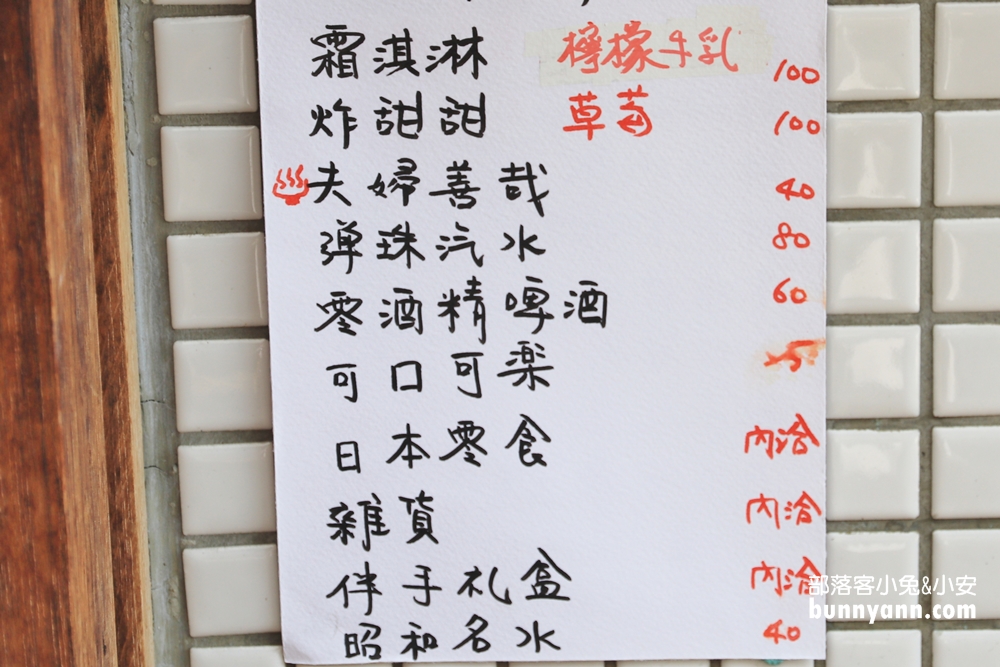 霜淇淋 檸檬牛乳 100
炸甜甜 草莓 100
夫婦善哉 40
弾珠汽水 80
零酒精啤酒 60
可口可楽
日本零食 內洽
雜貨 內洽
伴手礼盒 內洽
昭和名水 40
部落客小兔&小安
bunnyann.com